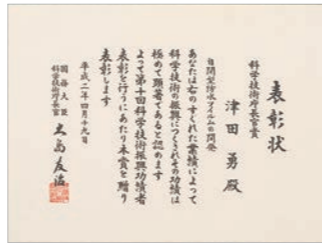 表彰状
科学技術庁長官賞
津田勇殿
自閉型防水フイルムの開発
あなたは右のすぐれた業績によって
科学技術の振興につくされその功績は
極めて顕著であると認めます
よって第十回科学技術振興功績者
表彰を行うにあたり本賞を贈り
表彰します
平成二年四月十九日
国務大臣
科学技術庁長官
大島友治